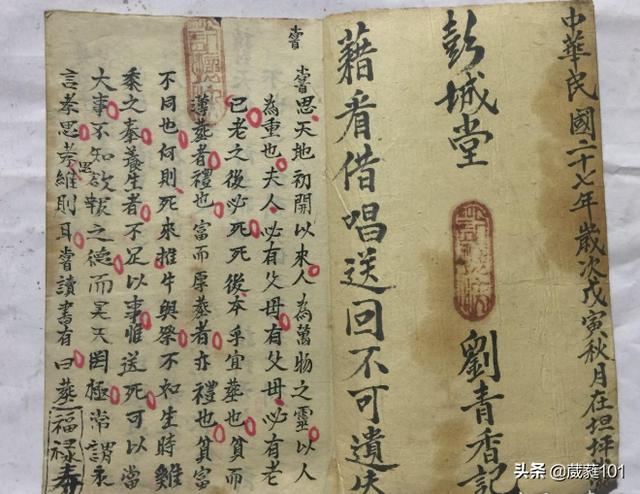 中華民國二十七年歲次戊寅秋月在坦坪
彭城堂
劉青香記
藉看借唱送回不可遺失
嘗
嘗思天地初開以來人為萬物之靈以人
為重也夫人必有父母有父母必有老
已老之後必死死後本乎宜葬也貧而
薄葬者禮也富而厚葬者亦禮也貧富
不同也何則死來推牛與祭不如生時雞
黍之奉養生者不足以事惟送死可以當
大事不知欲報之德而昊天罔極常謂永
言孝思孝思維則耳嘗讀書有曰葬
福祿壽
头条 @葳蕤101